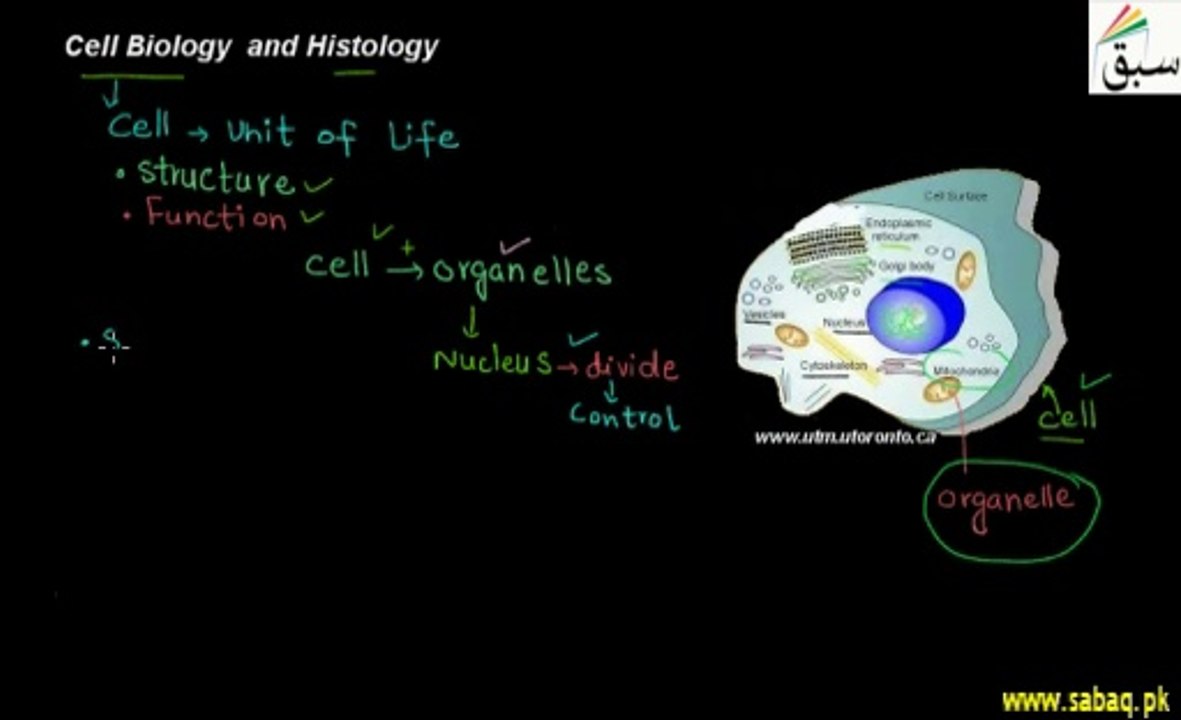 Cell Biology and Histology
سبق
Cell → Unit of Life
• Structure ✓
• Function ✓
Cell → organelles
Nucleus → divide
Control
Cell Surface
Endoplasmic
reticulum
Golgi body
Vesicles
Nucleus
Cytoskeleton
Mitochondria
www.utm.utoronto.ca
Cell
organelle
www.sabaq.pk